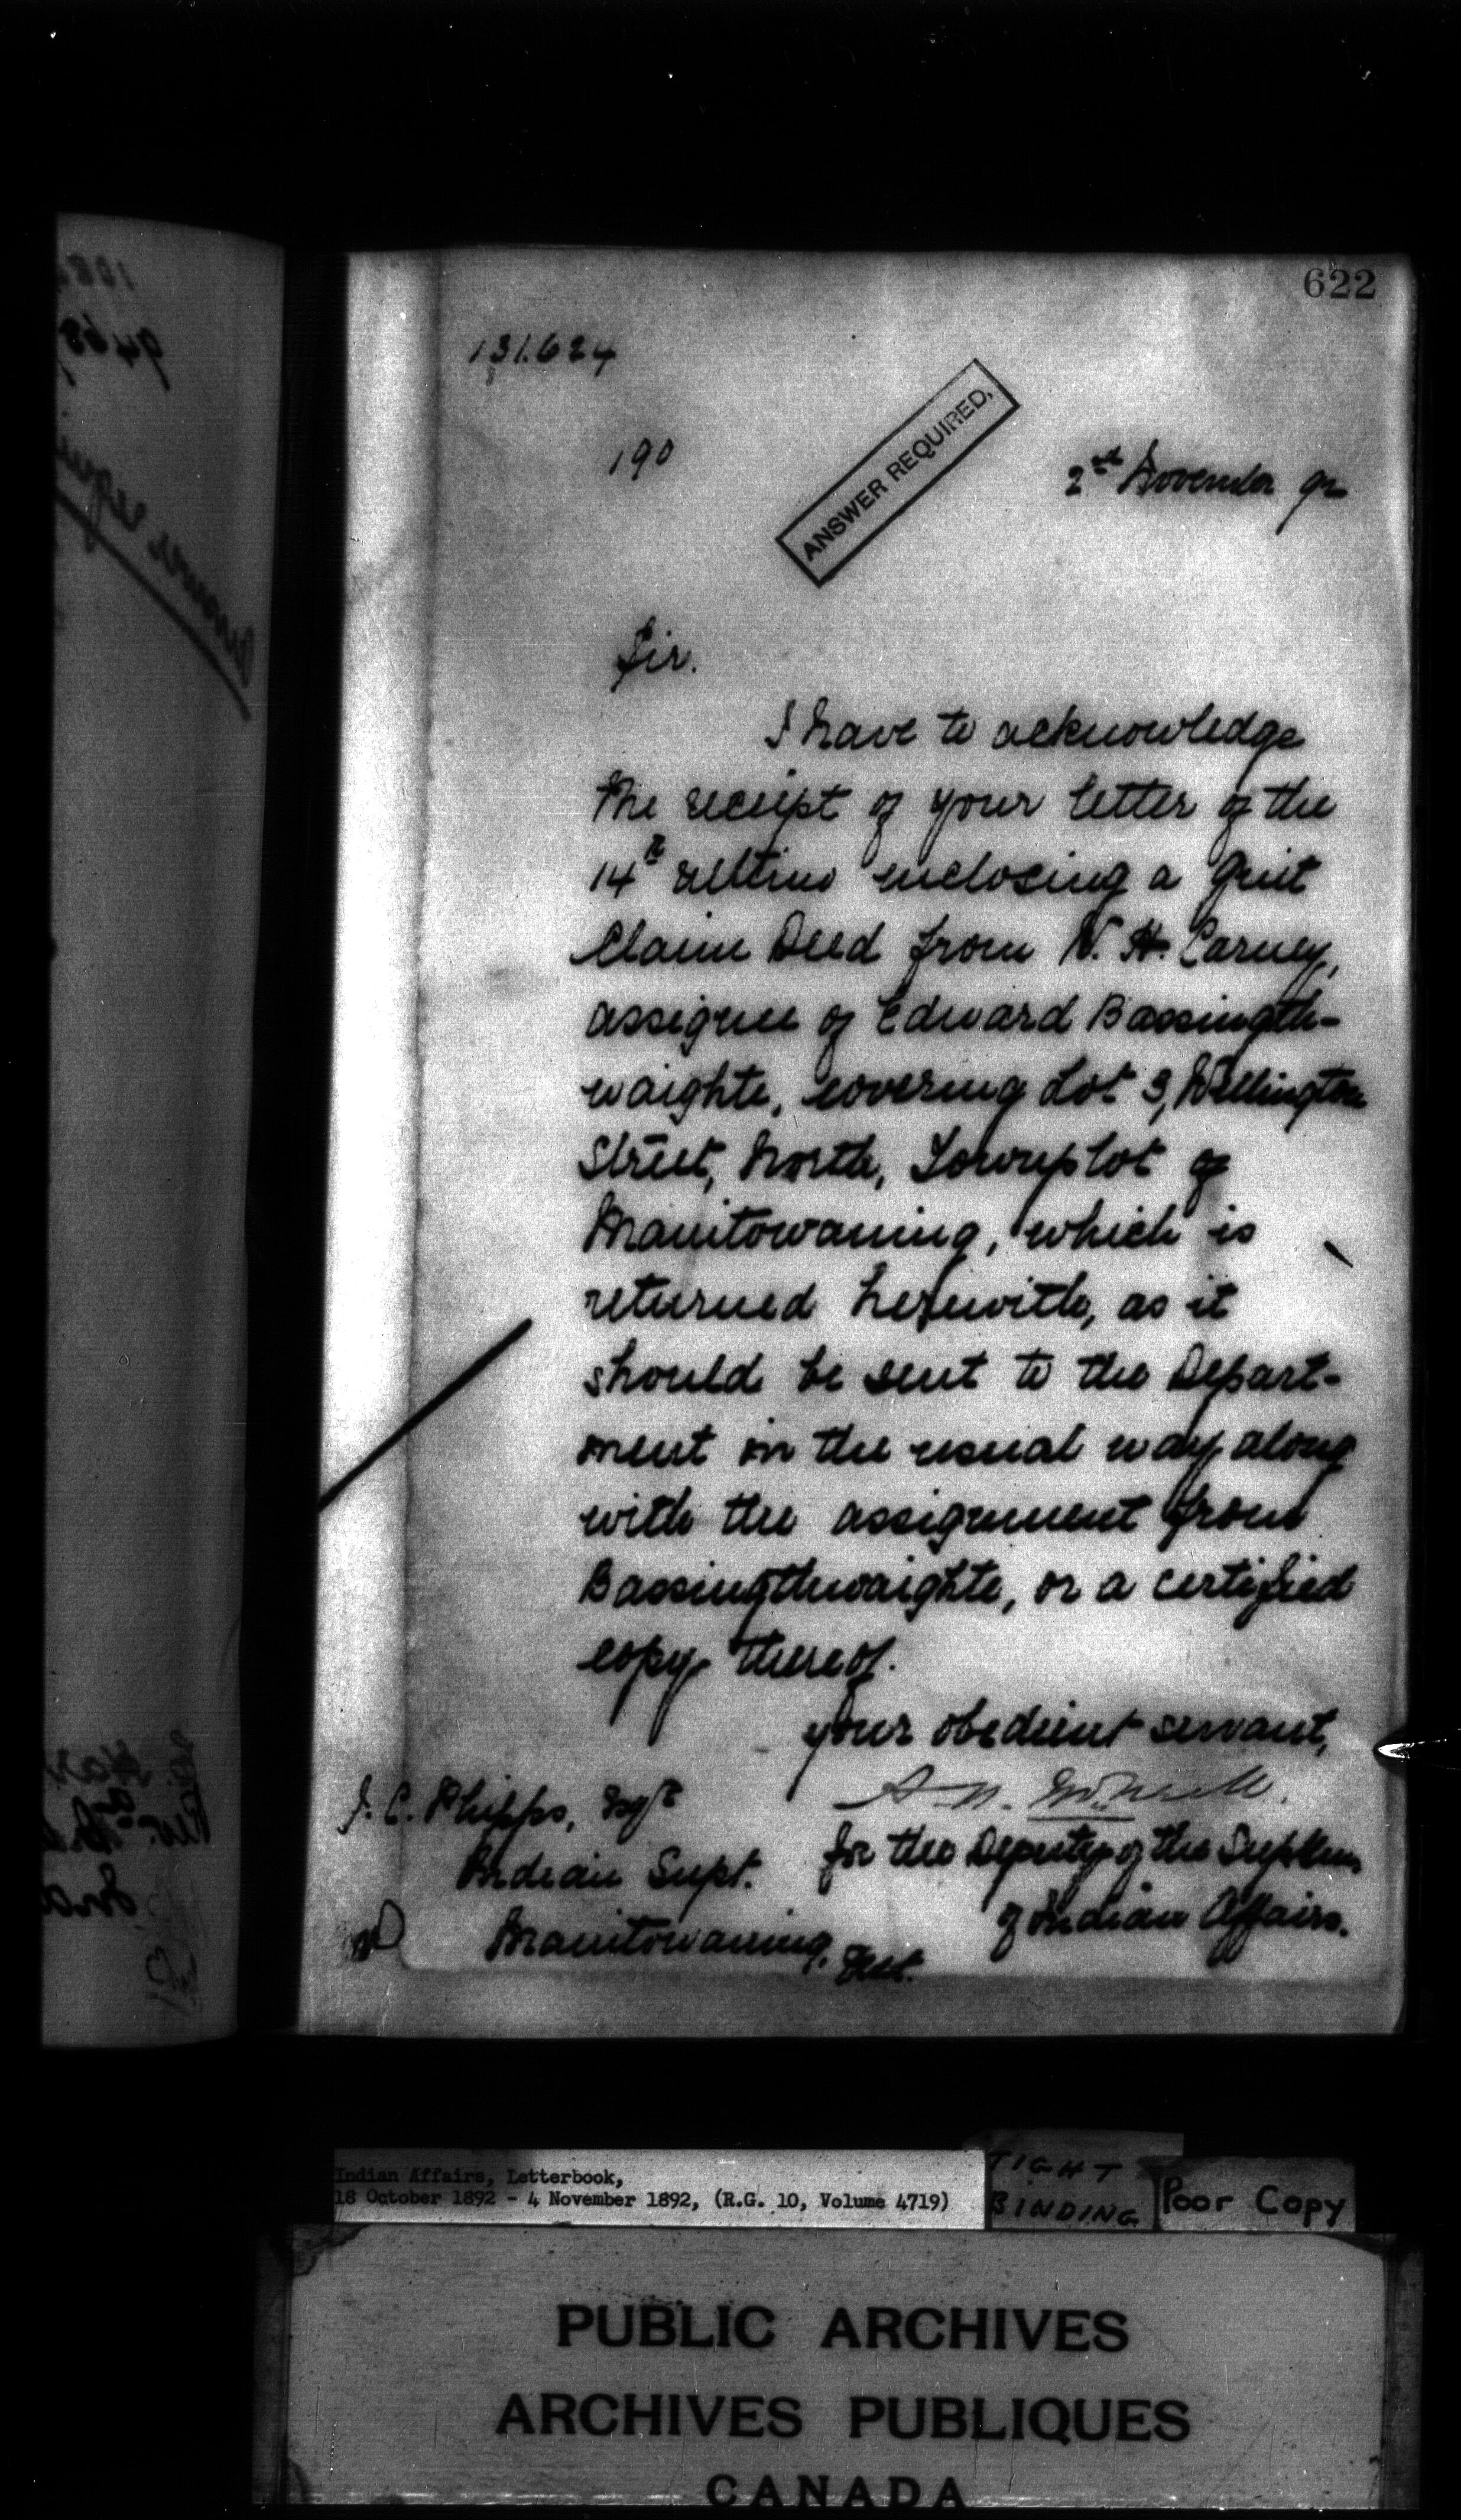 622
131.624
190
ANSWER REQUIRED.
2nd November 92
Sir.
I have to acknowledge
the receipt of your letter of the
14th ultimo enclosing a Quit
Claim Deed from W. H. Carney,
assignee of Edward Bassingth-
waighte, covering Lot 3, Wellington
Street, North, Townplot of
Manitowaning, which is
returned herewith, as it
should be sent to the Depart-
ment in the usual way along
with the assignment from
Bassingthwaighte, or a certified
copy thereof.
your obedient servant,
J. C. Phipps, Esqr
for the Deputy of the Supt Genl
Indian Supt.
of Indian Affairs.
Manitowaning, Ont.
Indian Affairs, Letterbook,
18 October 1892 - 4 November 1892, (R.G. 10, Volume 4719)
TIGHT
BINDING
Poor Copy
PUBLIC ARCHIVES
ARCHIVES PUBLIQUES
CANADA